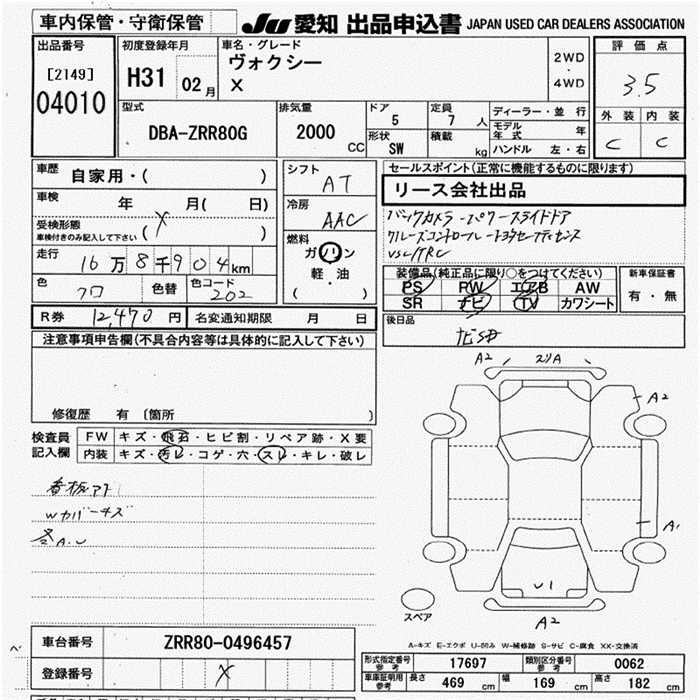 車内保管・守衛保管
JU 愛知 出品申込書 JAPAN USED CAR DEALERS ASSOCIATION
出品番号
[2149]
04010
初度登録年月
H31 02月
車名・グレード
ヴォクシー
X
2WD
・
4WD
評価点
3.5
外装 内装
C C
型式
DBA-ZRR80G
排気量
2000
CC
ドア
5
定員
7 人
形状
SW
積載
kg
ディーラー・並行
モデル年式 年
ハンドル 左・右
車歴
自家用・( )
車検
年 月( 日)
受検形態
車検付きのみ記入して下さい
( X )
走行
16万8千904km
色
クロ
色替
色コード
202
シフト
AT
冷房
AAC
燃料
ガソリン
軽・油
( )
セールスポイント(正常に機能するものに限ります)
リース会社出品
バックカメラ・パワースライドドア
クルーズコントロール・トヨタセーフティセンス
VSC/TRC
装備品(純正品に限り○をつけてください)
PS RW エアB AW
SR ナビ TV カワシート
新車保証書
有・無
後日品
ナビSD
R券 12,470 円
名変通知期限 月 日
注意事項申告欄(不具合内容等は具体的に記入して下さい)
修復歴 有 〔箇所 〕
検査員
記入欄
FW キズ・飛石・ヒビ割・リペア跡・X要
内装 キズ・汚レ・コゲ・穴・スレ・キレ・破レ
看板アト
Wカバーキズ
A2 2リA
A2
A1
U1
A2
スペア
A-キズ E-エクボ U-凹み W-補修跡 S-サビ C-腐食 XX-交換済
車台番号
ZRR80-0496457
登録番号
X
形式指定番号
参考
17697
類別区分番号
参考
0062
車庫証明用
参考
長さ
469 cm
幅
169 cm
高さ
182 cm